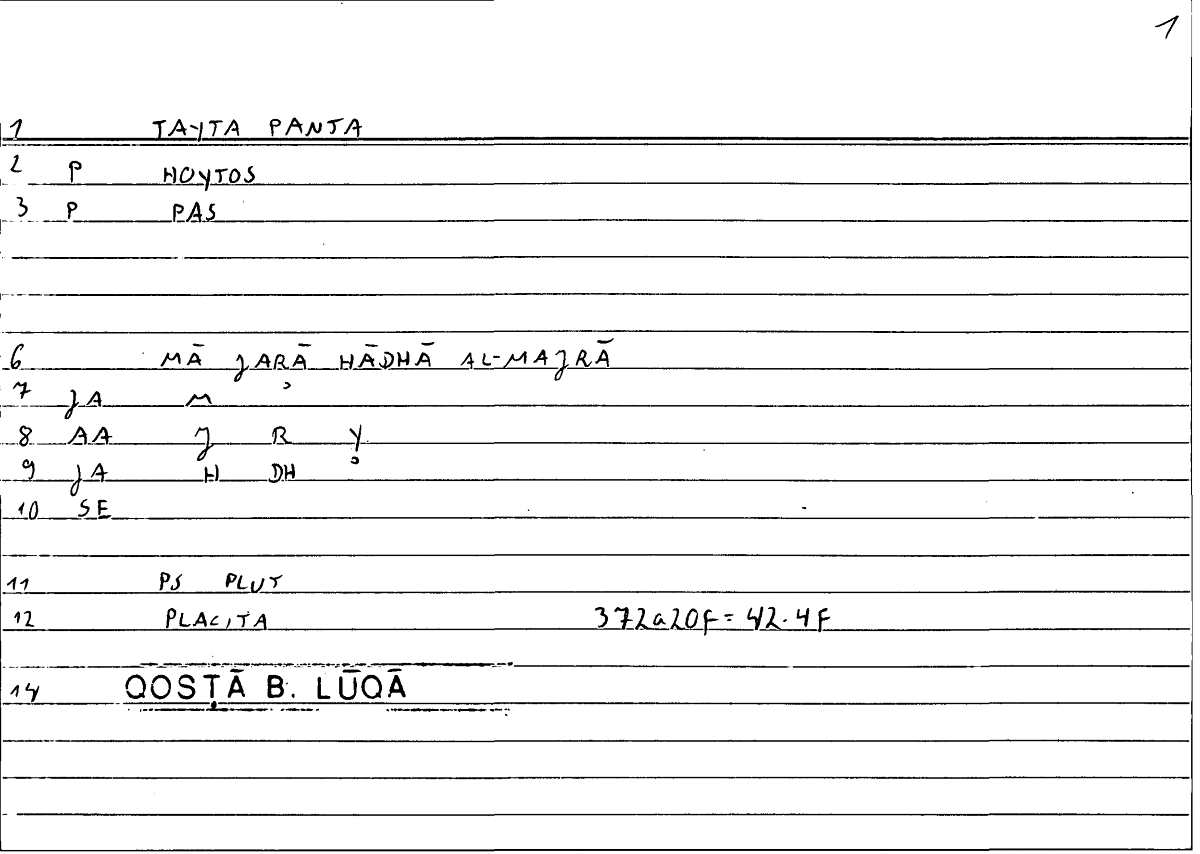 1
1 TAYTA PANTA
2 P HOYTOS
3 P PAS
6 MĀ JARĀ HĀDHĀ AL-MAJRĀ
7 JA M
8 AA J R Y
9 JA H DH
10 SE
11 PS PLUT
12 PLACITA 372a20F = 42.4F
14 QOSṬĀ B. LŪQĀ